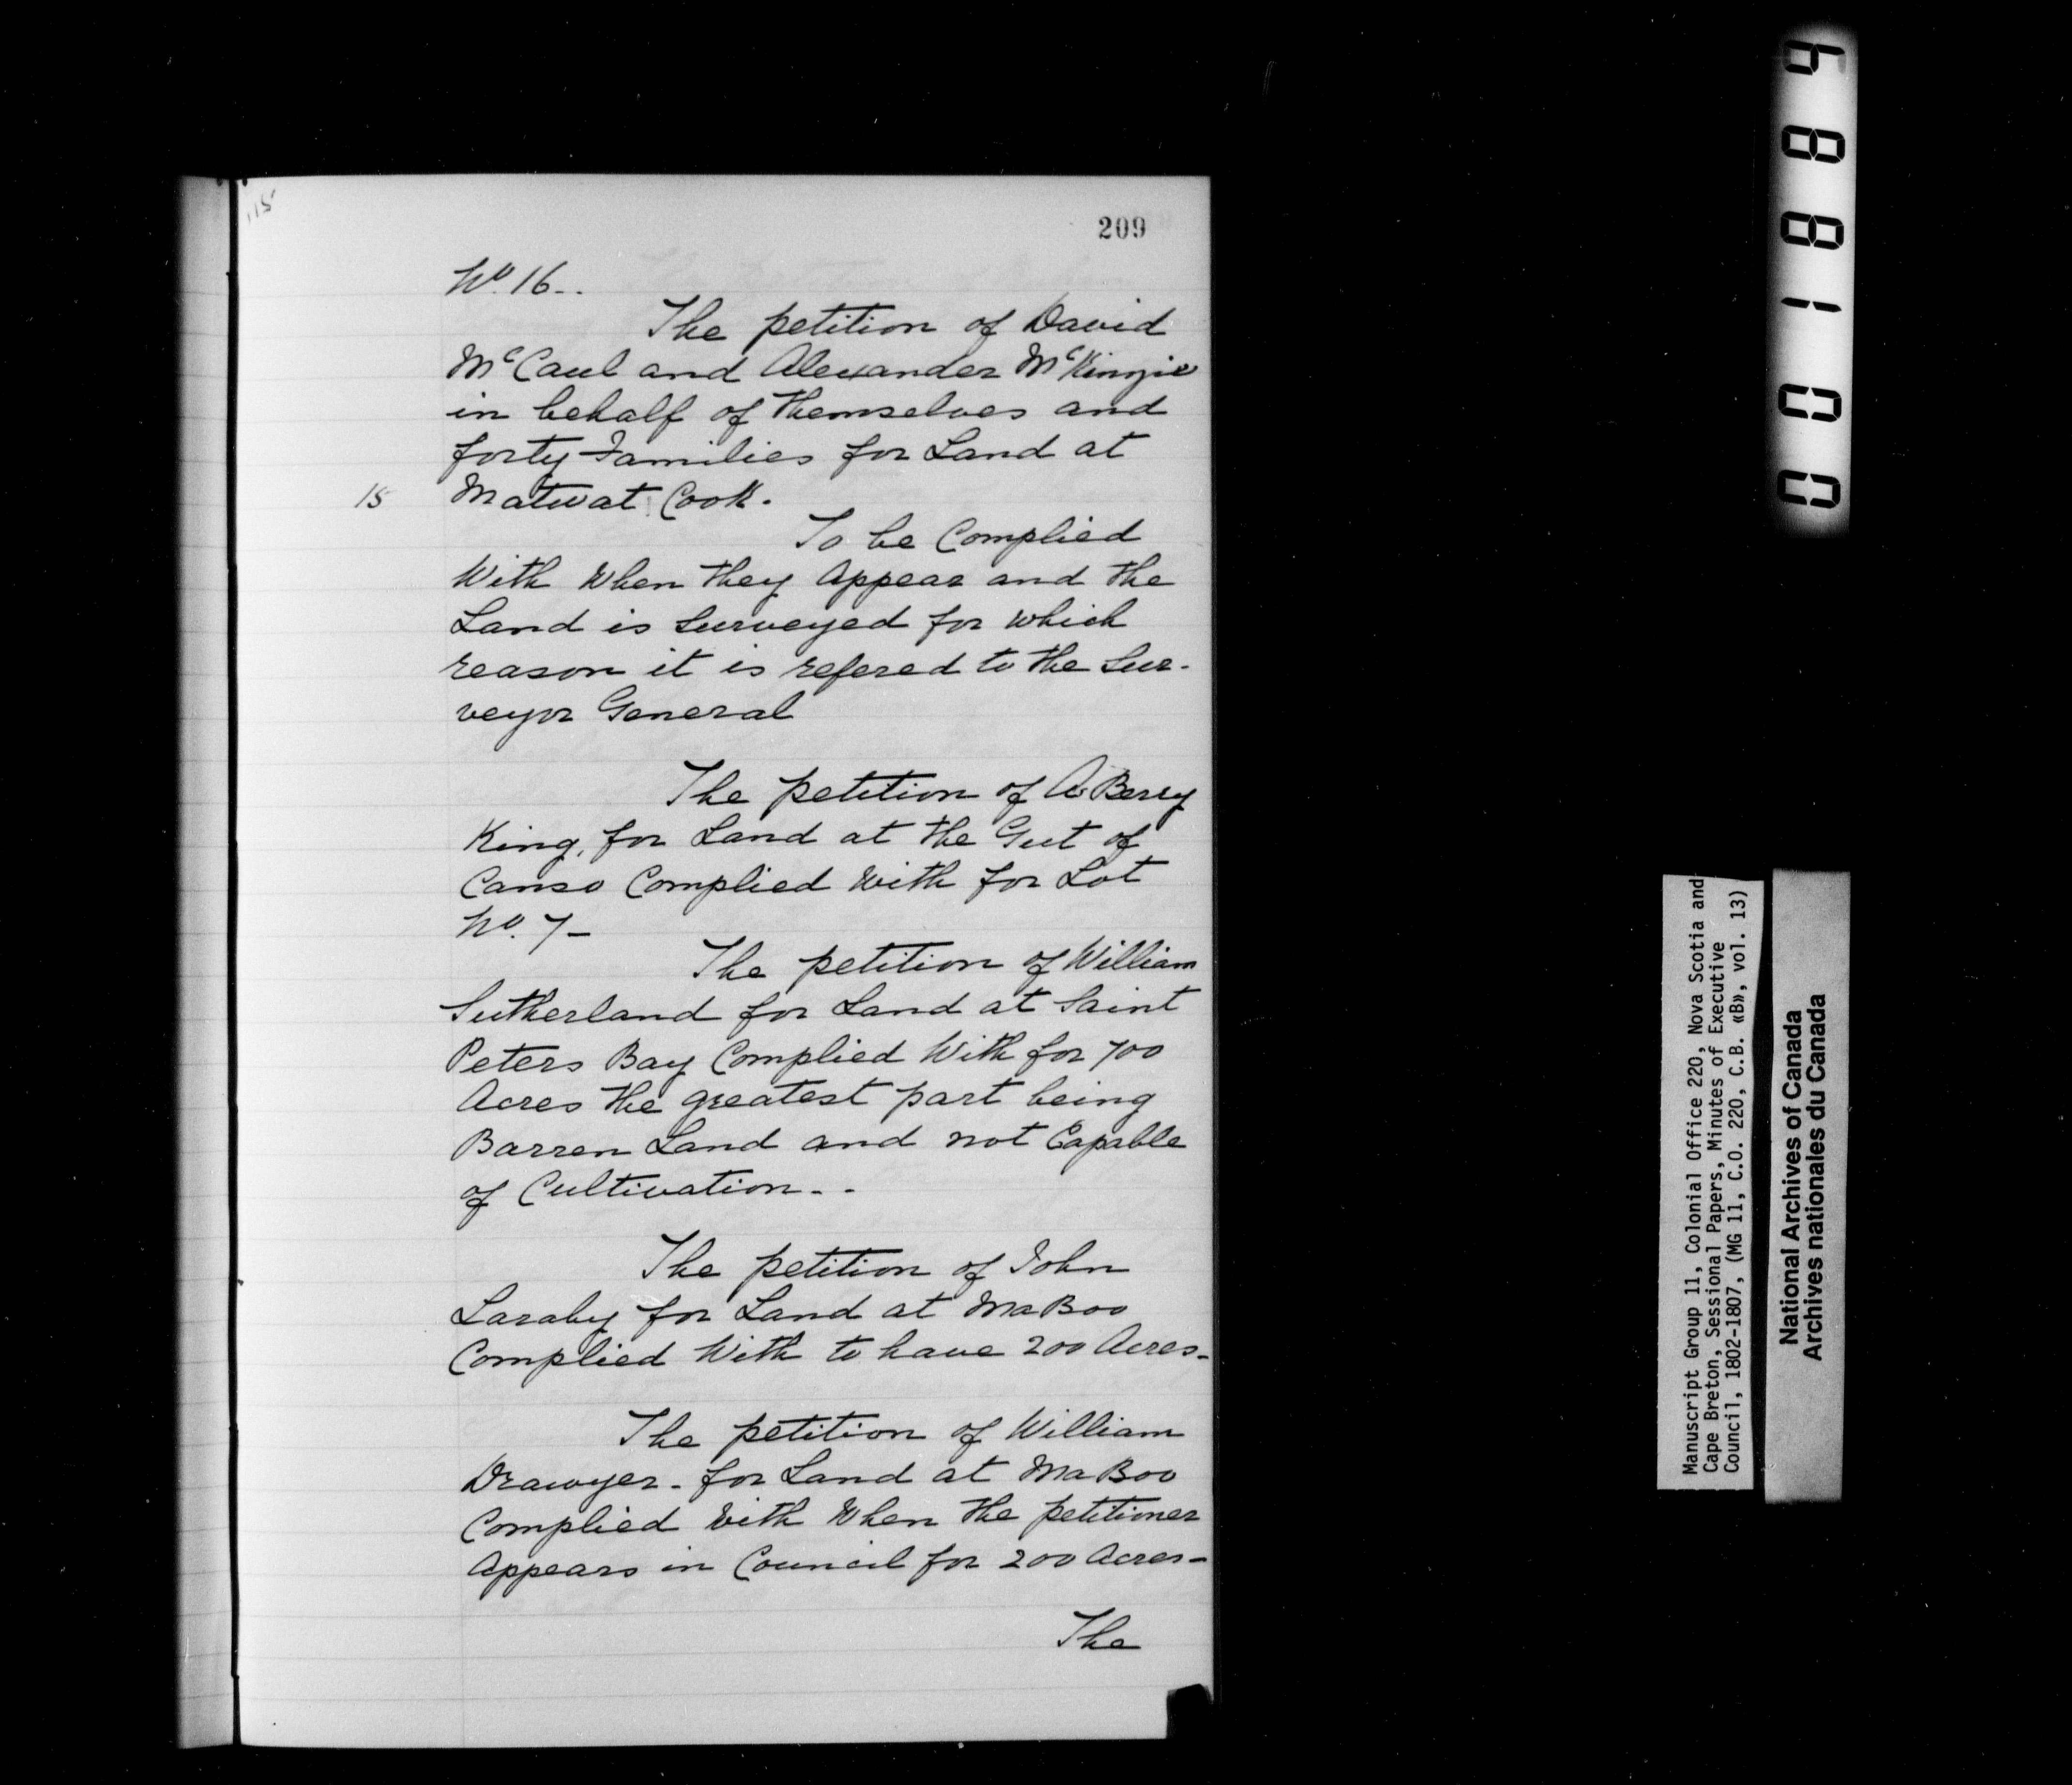 115
209
No. 16 - -
The petition of David
McCaul and Alexander McKinzie
in behalf of themselves and
forty Families for Land at
15 Matwat Cook.
To be Complied
With When they Appear and the
Land is Surveyed for which
reason it is refered to the Sur-
veyor General
The petition of A Berry
King, for Land at the Gut of
Canso Complied With for Lot
No. 7 -
The petition of William
Sutherland for Land at Saint
Peters Bay Complied With for 700
Acres the greatest part being
Barren Land and not Capable
of Cultivation - -
The petition of John
Laraby for Land at MaBoo
Complied With to have 200 Acres -
The petition of William
Drawyer - for Land at MaBoo
Complied With When the petitioner
Appears in Council for 200 Acres -
The
001884
Manuscript Group 11, Colonial Office 220, Nova Scotia and
Cape Breton, Sessional Papers, Minutes of Executive
Council, 1802-1807, (MG 11, C.O. 220, C.B. «B», vol. 13)
National Archives of Canada
Archives nationales du Canada